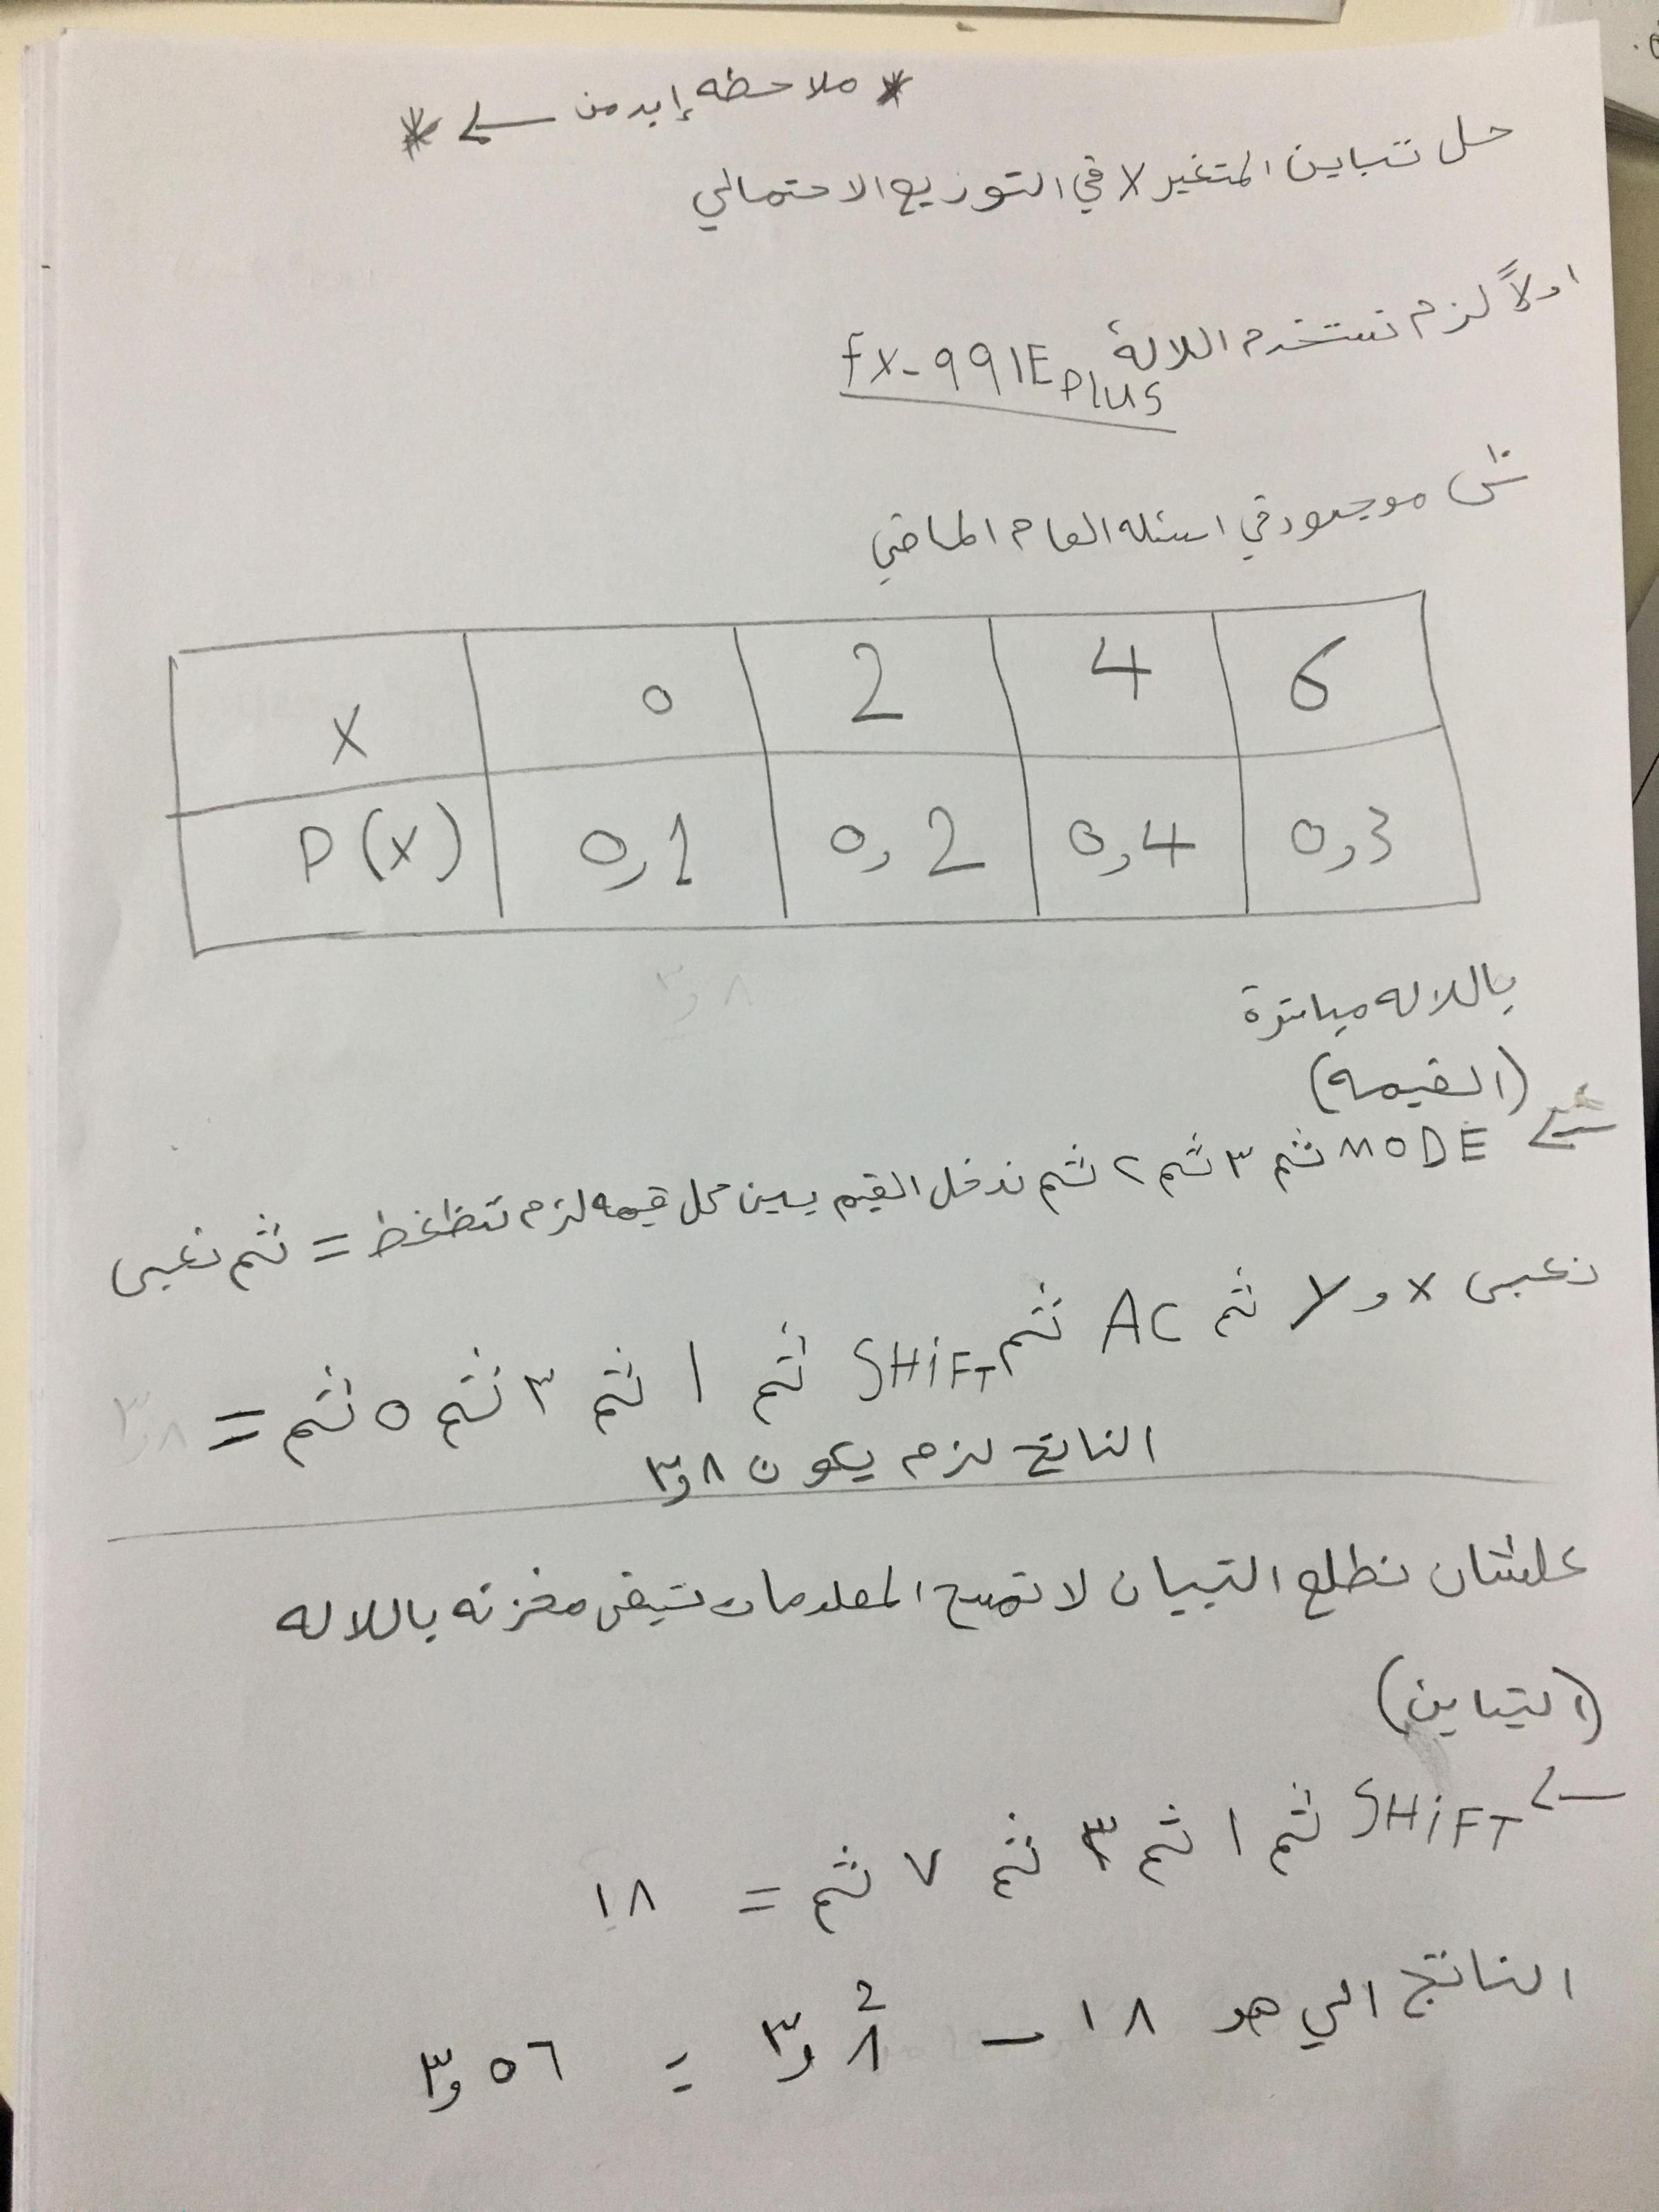 * ملاحظه إبد من ← *
حل تباين المتغير X في التوزيع الاحتمالي
اولاً لزم نستخدم اللالة fx-991E PLUS
موجود في اسئله العام الماضي
X 0 2 4 6
P(X) 0,1 0,2 0,4 0,3
باللاله مباشرة
(القيمه)
← MODE ثم ٣ ثم ٢ ثم ندخل القيم بين كل قيمه لزم تتظغط = ثم نعبى
نعبى x و y ثم AC ثم SHiFT ثم ١ ثم ٣ ثم ٥ ثم =
الناتج لزم يكون ٣٫٨
علشان نطلع التبيان لا تمسح المعلومات تبقى مخزنه باللاله
(التباين)
← SHiFT ثم ١ ثم ٣ ثم ٧ ثم = ١٨
الناتج الي هو ١٨ - ٣٫٨² = ٣٫٥٦